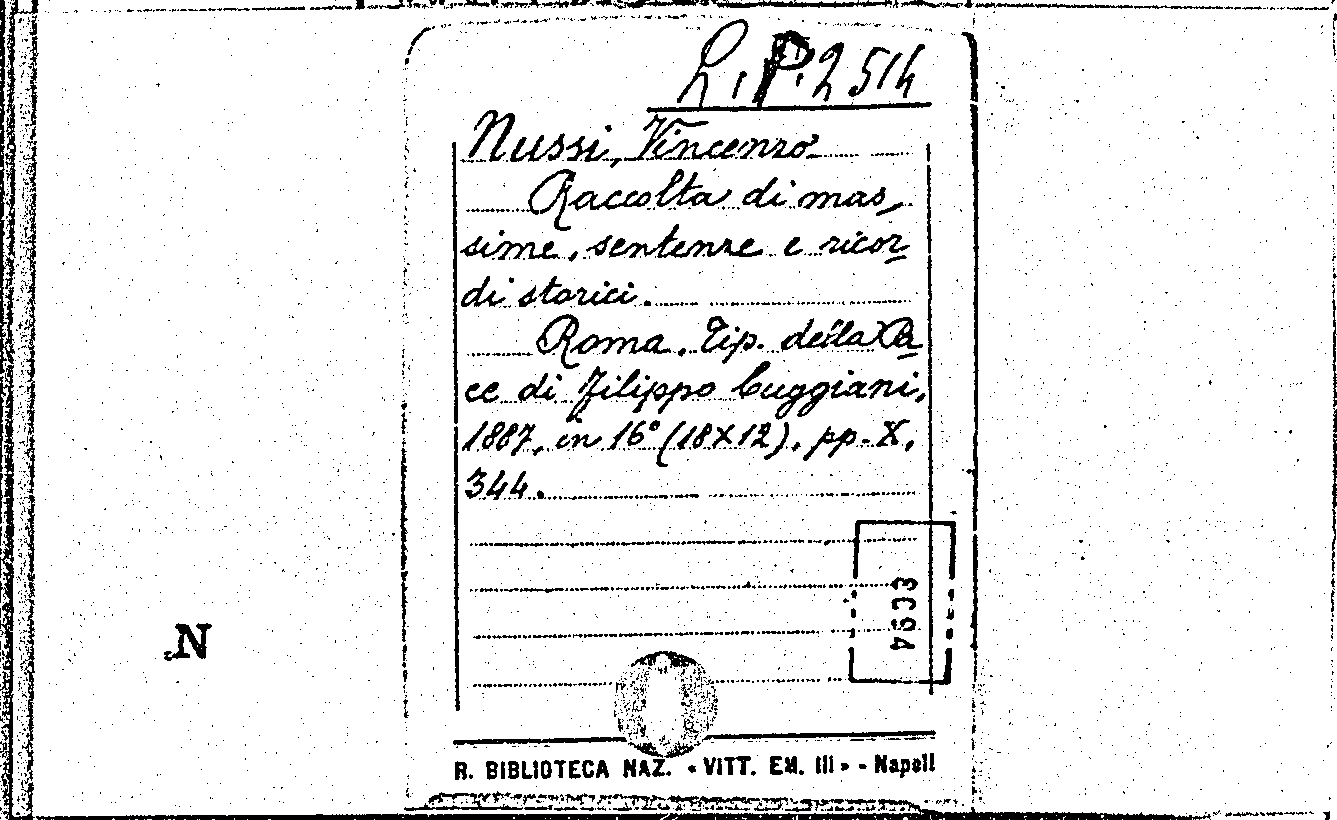 L.P. 2514
Nussi, Vincenzo
Raccolta di mas-
sime, sentenze e ricor-
di storici.
Roma. Tip. della Pa-
ce di Filippo Cuggiani,
1887, in 16° (18X12), pp. X,
344.
N
R. BIBLIOTECA NAZ. « VITT. EM. III » - Napoli